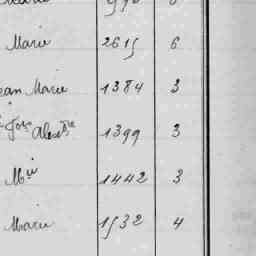 Marie 2615 6
ean Marie 1384 3
Fois Alextre 1399 3
Mie 1442 3
Marie 1532 4